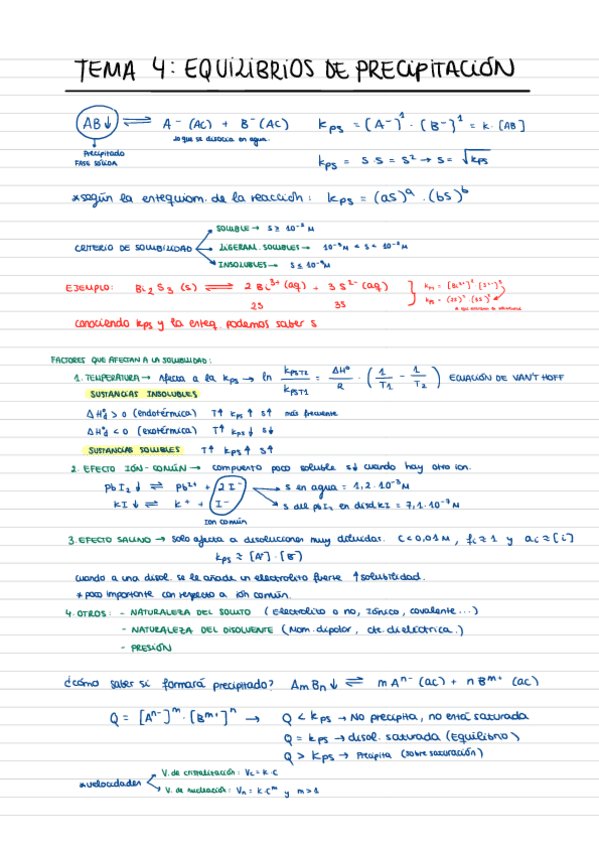 TEMA 4: EQUILIBRIOS DE PRECIPITACIÓN
AB↓ ⇌ A⁻ (AC) + B⁻ (AC) Kps = [A⁻]¹ · [B⁻]¹ = K · [AB]
lo que se disocia en agua.
Precipitado
FASE SÓLIDA
Kps = s · s = s² → s = √Kps
*según la estequiom. de la reacción: Kps = (as)ᵃ · (bs)ᵇ
SOLUBLE → s ≥ 10⁻² M
CRITERIO DE SOLUBILIDAD LIGERAM. SOLUBLES → < s <
INSOLUBLES → s ≤
EJEMPLO: Bi₂S₃ (s) ⇌ 2 Bi³⁺ (aq) + 3 S²⁻ (aq)
2s 3s
conociendo Kps y la esteq. podemos saber s
FACTORES QUE AFECTAN A LA SOLUBILIDAD:
1. TEMPERATURA → Afecta a la Kps → ln KpsT2 / KpsT1 = ΔH° / R · (1/T1 − 1/T2) ECUACIÓN DE VAN'T HOFF
SUSTANCIAS INSOLUBLES
ΔH°d > 0 (endotérmica) T↑ Kps ↑ s↑ más frecuente
ΔH°d < 0 (exotérmica) T↑ Kps ↓ s↓
SUSTANCIAS SOLUBLES T↑ Kps ↑ s↑
2. EFECTO IÓN-COMÚN → compuesto poco soluble s↓ cuando hay otro ion.
PbI₂ ↓ ⇌ Pb²⁺ + 2I⁻ s en agua = 1,2 · 10⁻³ M
KI ↓ ⇌ K⁺ + I⁻ s del PbI₂ en disol KI = 7,1 ·
Ion común
3. EFECTO SALINO → solo afecta a disoluciones muy diluidas. C < 0,01 M, fi ≈ 1 y ai ≈ [i]
Kps ≈ [A⁻] · [B⁻]
cuando a una disol. se le añade un electrolito fuerte ↑ solubilidad.
* poco importante con respecto a ión común.
4. OTROS: - NATURALEZA DEL SOLUTO (Electrolito o no, Iónico, covalente...)
- NATURALEZA DEL DISOLVENTE (Mom. dipolar, cte. dieléctrica.)
- PRESIÓN
¿cómo saber si formará precipitado? AmBn ↓ ⇌ m Aⁿ⁻ (ac) + n Bᵐ⁺ (ac)
Q = [Aⁿ⁻]ᵐ · [Bᵐ⁺]ⁿ → Q < Kps → No precipita, no está saturada
Q = Kps → disol. saturada (Equilibrio)
Q > Kps → Precipita (sobresaturación)
V. de cristalización: Vc = K · C
*velocidades
V. de nucleación: Vn = K · Cᵐ y m > 1